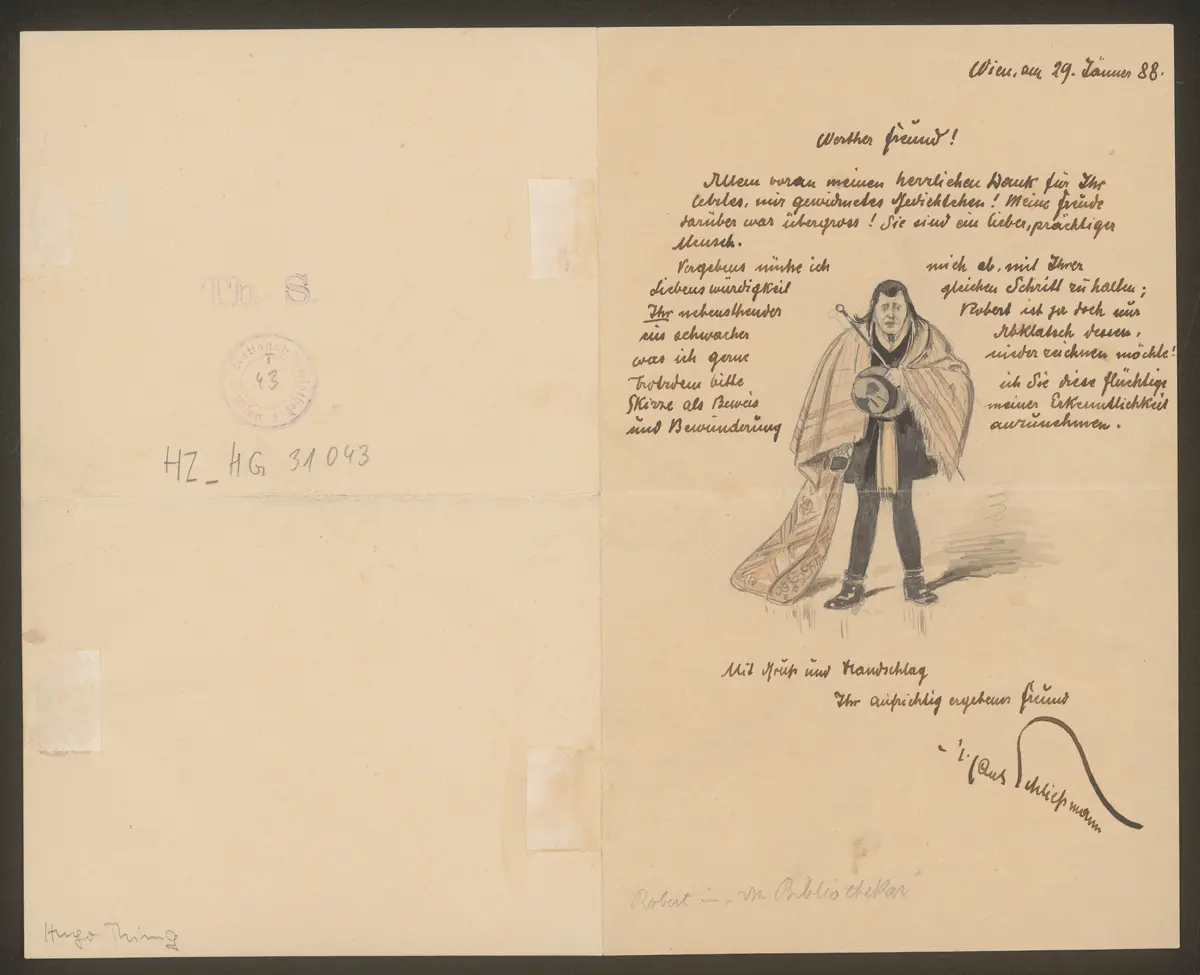 43
HZ_HG 31043
Hugo Thimig
Wien, am 29. Jänner 88.
Werther Freund!
Allem voran meinen herzlichen Dank für Ihr
liebes, mir gewidmetes Gedichtchen! Meine Freude
darüber war übergross! Sie sind ein lieber, prächtiger
Mensch.
Vergebens mühe ich mich ab, mit Ihrer
Liebenswürdigkeit gleichen Schritt zu halten;
Ihr nebenstehender Robert ist ja doch nur
ein schwacher Abklatsch dessen,
was ich gerne niederzeichnen möchte!
Trotzdem bitte ich Sie diese flüchtige
Skizze als Beweis meiner Erkenntlichkeit
und Bewunderung anzunehmen.
Mit Gruß und Handschlag
Ihr aufrichtig ergebener Freund
Hans Schließmann
Robert in Bibliothekar